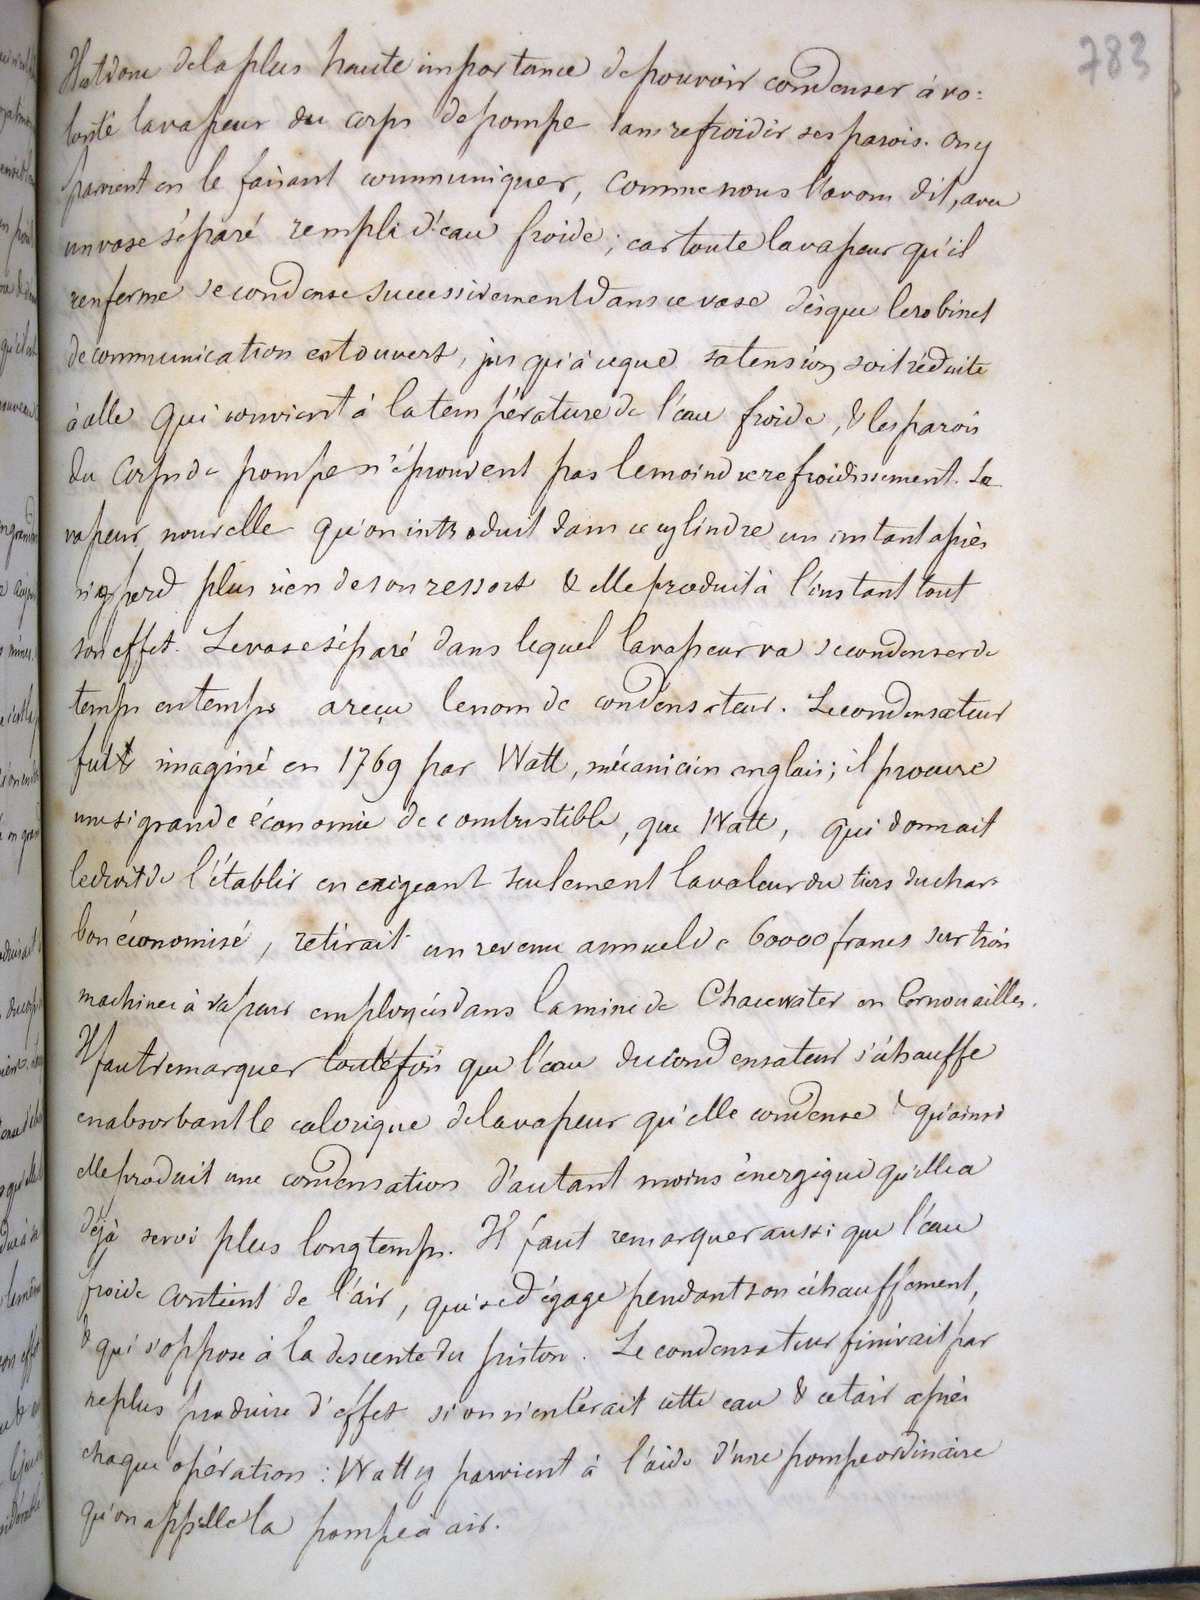 783
Il est donc de la plus haute importance de pouvoir condenser à vo:
lonté la vapeur du corps de pompe sans refroidir ses parois. on y
parvient en le faisant communiquer, comme nous l'avons dit, avec
un vase séparé rempli d'eau froide; car toute la vapeur qu'il
renferme se condense successivement dans ce vase dès que le robinet
de communication est ouvert, jusqu'à ce que sa tension soit réduite
à celle qui convient à la température de l'eau froide, & les parois
du corps de pompe n'éprouvent pas le moindre refroidissement. La
vapeur nouvelle qu'on introduit dans ce cylindre un instant après
n'y perd plus rien de son ressort & elle produit à l'instant tout
son effet. Le vase séparé dans lequel la vapeur va se condenser de
temps en temps a reçu le nom de condensateur. Le condensateur
fut imaginé en 1769 par Watt, mécanicien anglais; il procure
une si grande économie de combustible, que Watt, qui donnait
le droit de l'établir en exigeant seulement la valeur du tiers du char-
bon économisé, retirait un revenu annuel de 60000 francs sur trois
machines à vapeur employées dans la mine de Chacewater en Cornouailles.
Il faut remarquer toutefois que l'eau du condensateur s'échauffe
en absorbant le calorique de la vapeur qu'elle condense & qu'ainsi
elle produit une condensation d'autant moins énergique qu'elle a
déjà servi plus longtemps. Il faut remarquer aussi que l'eau
froide contient de l'air, qui se dégage pendant son échauffement,
& qui s'oppose à la descente du piston. Le condensateur finirait par
ne plus produire d'effet si on n'enlevait cette eau & cet air après
chaque opération: Watt y parvient à l'aide d'une pompe ordinaire
qu'on appelle la pompe à air.